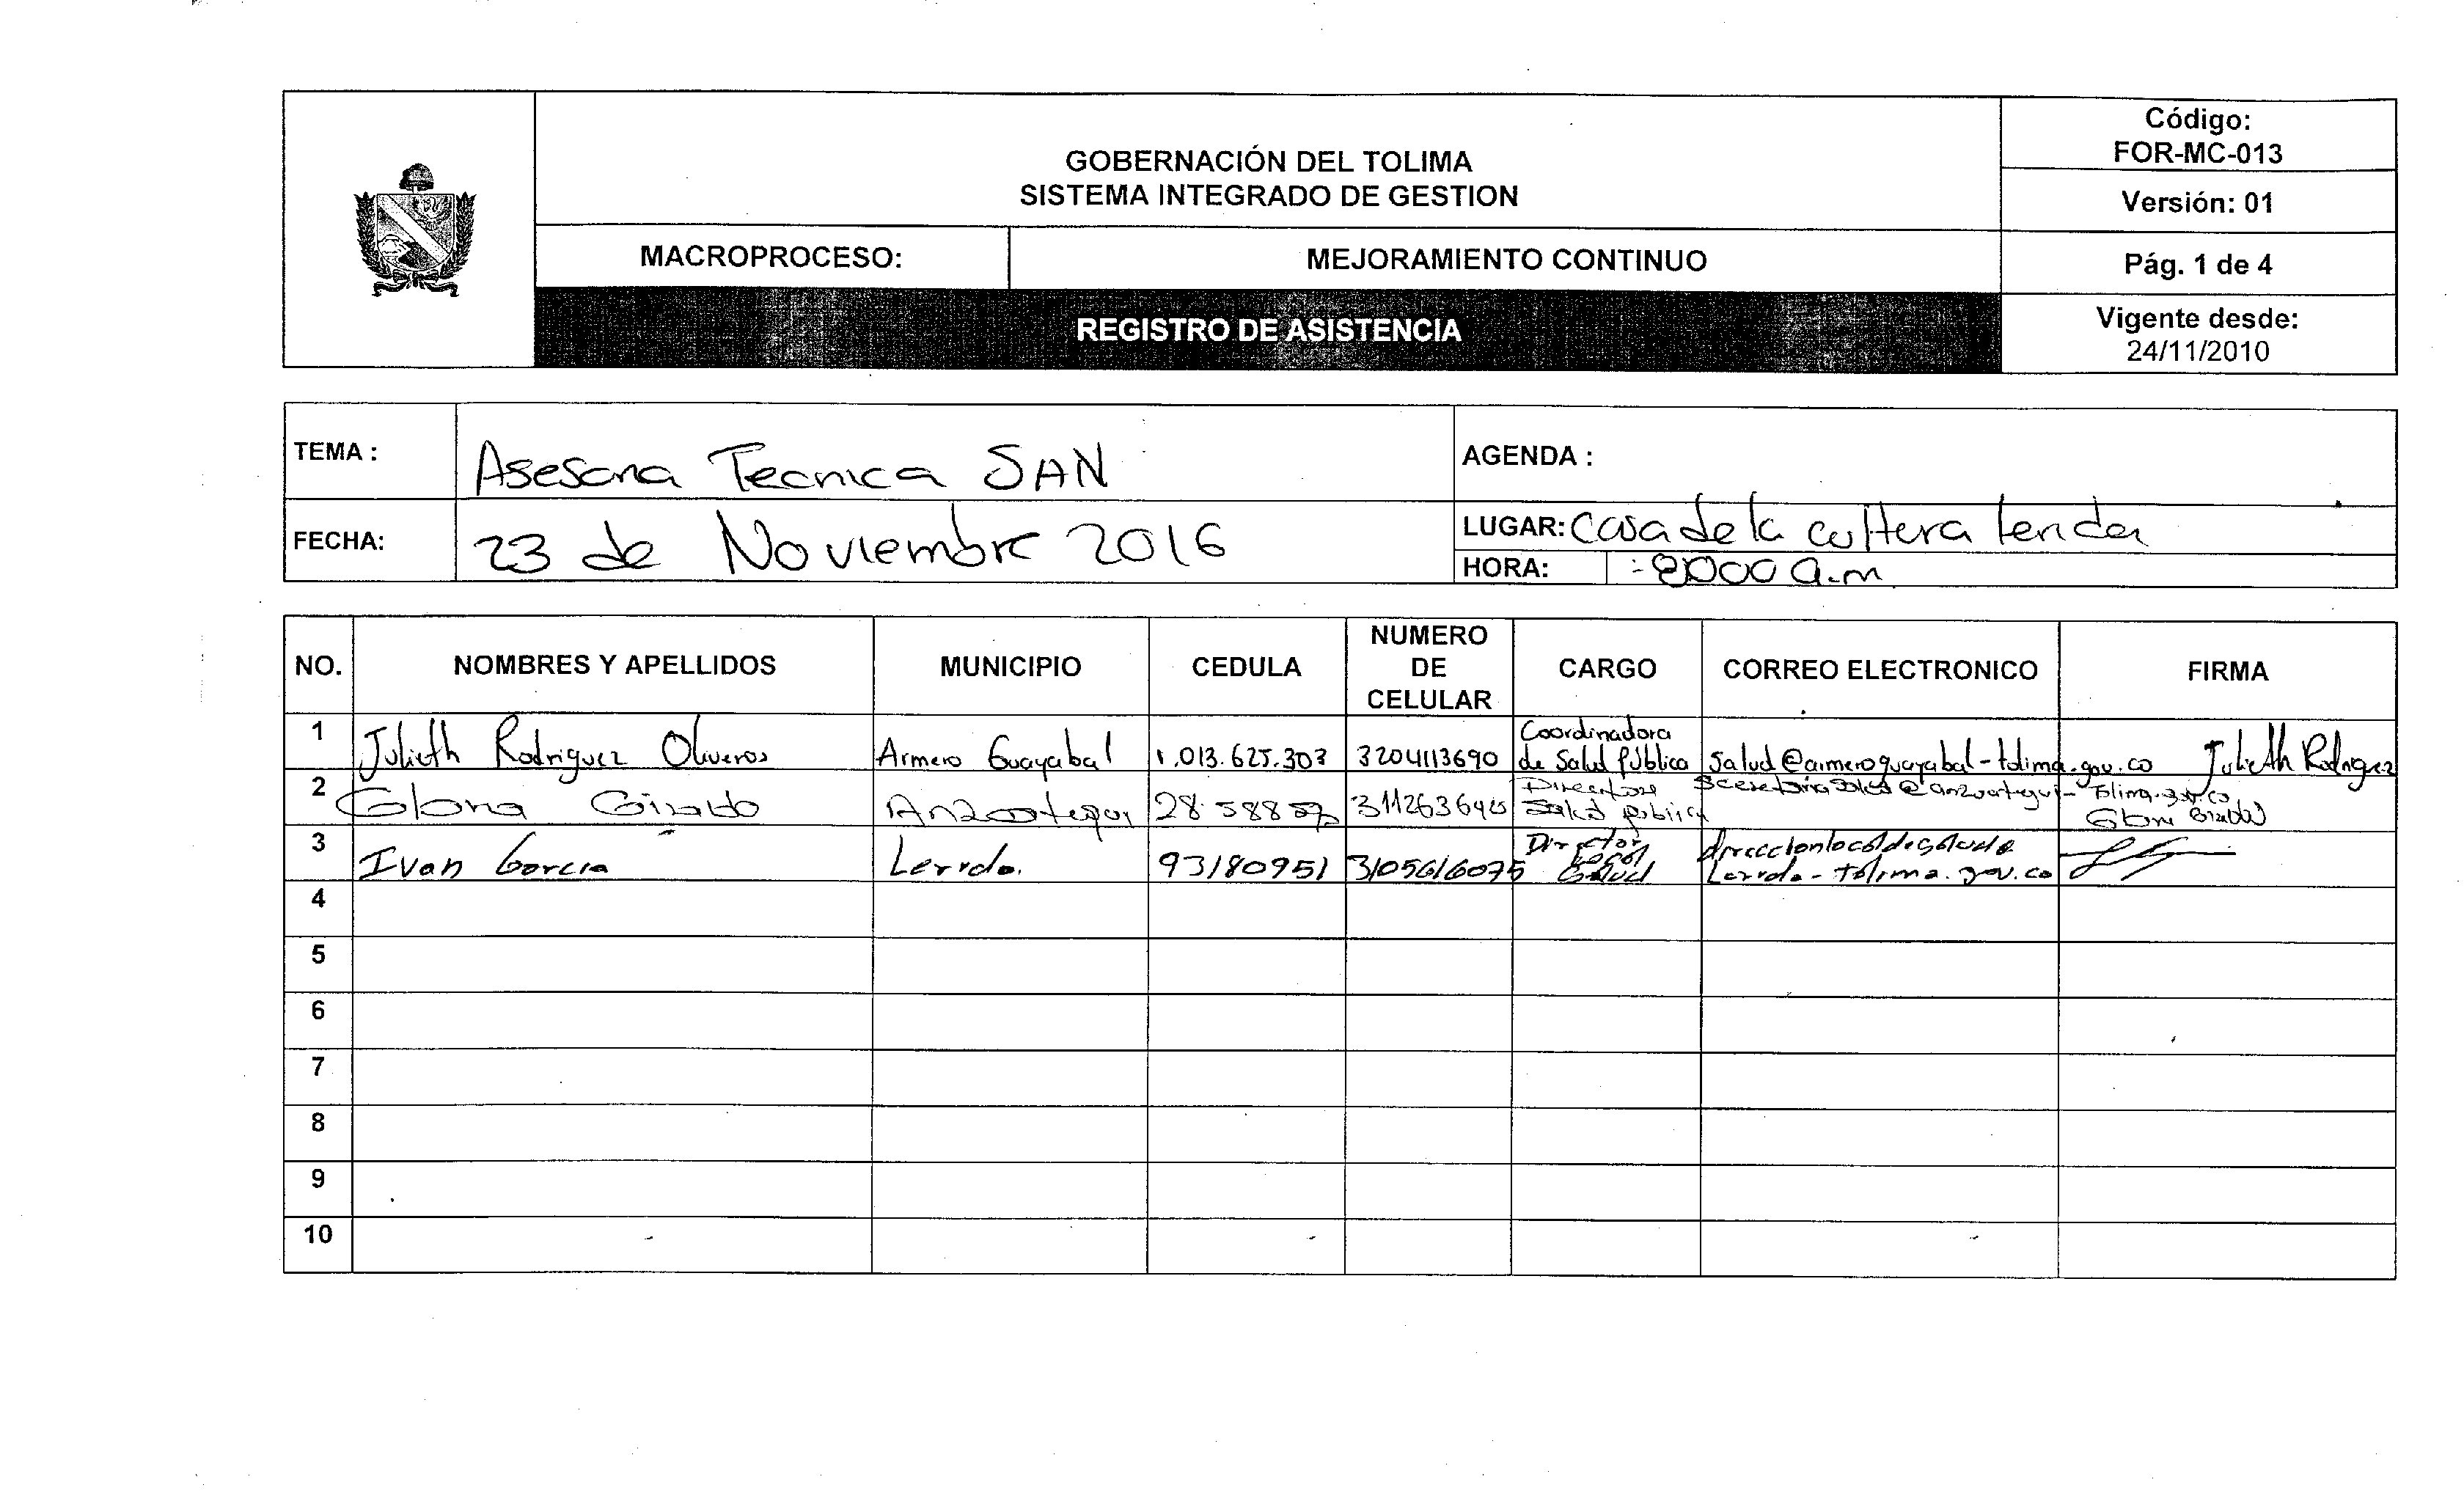 Código:
FOR-MC-013
GOBERNACIÓN DEL TOLIMA
SISTEMA INTEGRADO DE GESTION
Versión: 01
MACROPROCESO: MEJORAMIENTO CONTINUO
Pág. 1 de 4
REGISTRO DE ASISTENCIA
Vigente desde:
24/11/2010
TEMA : Asesoria Tecnica SAN
AGENDA :
FECHA: 23 de Noviembre 2016
LUGAR: Casa de la cultura
HORA: a.m
NO. NOMBRES Y APELLIDOS MUNICIPIO CEDULA NUMERO DE CELULAR CARGO CORREO ELECTRONICO FIRMA
1 Julieth Rodriguez Oliveros Armero Guayabal 1.013.625.303 3204113690 Coordinadora de Salud Pública salud@armeroguayabal-tolima.gov.co Julieth Rodriguez
2 Gloria Giraldo Anzoategui Salud publica Gloria Giraldo
3 Ivan Garcia Lerida. 93180951 3105616075 Director Local Salud direccionlocaldesalud@lerida-tolima.gov.co
4
5
6
7
8
9
10